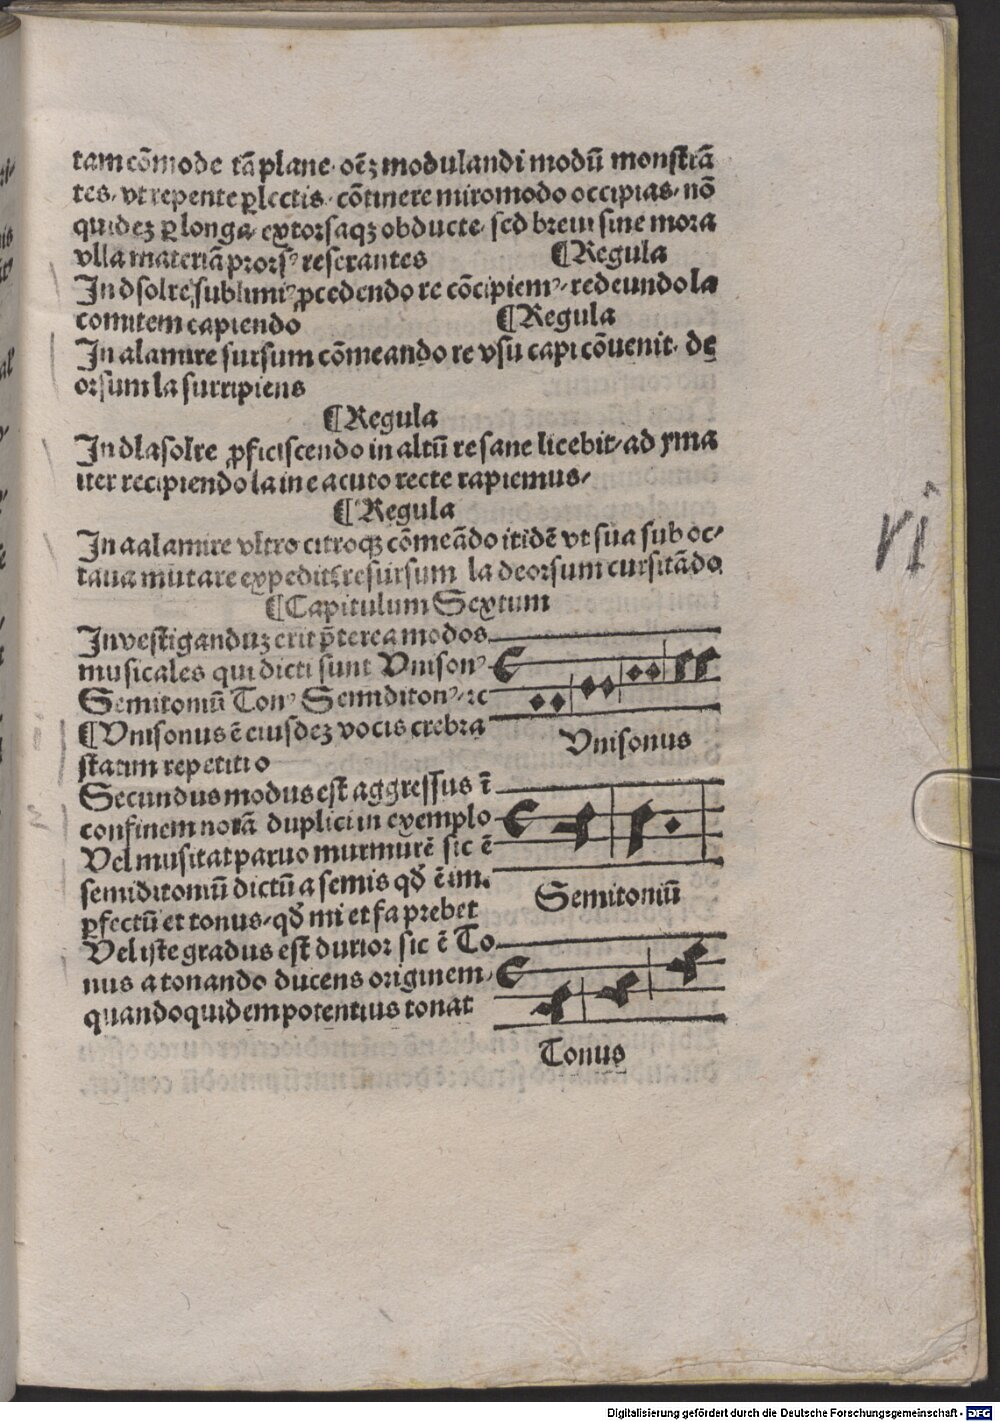 tam cōmode tā plane. oēꝫ modulandi modū monstrā
tes. vt repente ꝑlectis. cōtinere miro modo occipias. nō
quidez ꝑ longa. extorsaqꝫ obducte. sed breui sine mora
vlla materiā prorsꝰ reserantes ¶Regula
In dsolre sublimiꝰ ꝓcedendo re cōcipiemꝰ. redeundo la
comitem capiendo ¶Regula
In alamire sursum cōmeando re vsu capi cōuenit. de
orsum la surripiens
¶Regula
In dlasolre ꝓficiscendo in altū re sane licebit. ad yma
iter recipiendo la in e acuto recte rapiemus.
¶Regula
In aalamire vltro citroqꝫ cōmeādo itidē vt sua sub oc⸗
taua mutare expedit re sursum la deorsum cursitādo
¶Capitulum Sextum
Inuestiganduz erit p̄terea modos
musicales qui dicti sunt Vnisonꝰ
Semitoniū Tonꝰ Semiditonꝰ. ꝛc
¶Vnisonus ē eiusdez vocis crebra
statim repetitio
Vnisonus
Secundus modus est aggressus ī
confinem notā duplici in exemplo
Vel musitat paruo murmurē sic ē
semiditoniū dictū a semis qđ ē im.
ꝑfectū et tonus. qđ mi et fa prebet
Semitoniū
Vel iste gradus est durior sic ē To
nus a tonando ducens originem.
quandoquidem potentius tonat
Tonus
vi
Digitalisierung gefördert durch die Deutsche Forschungsgemeinschaft - DFG